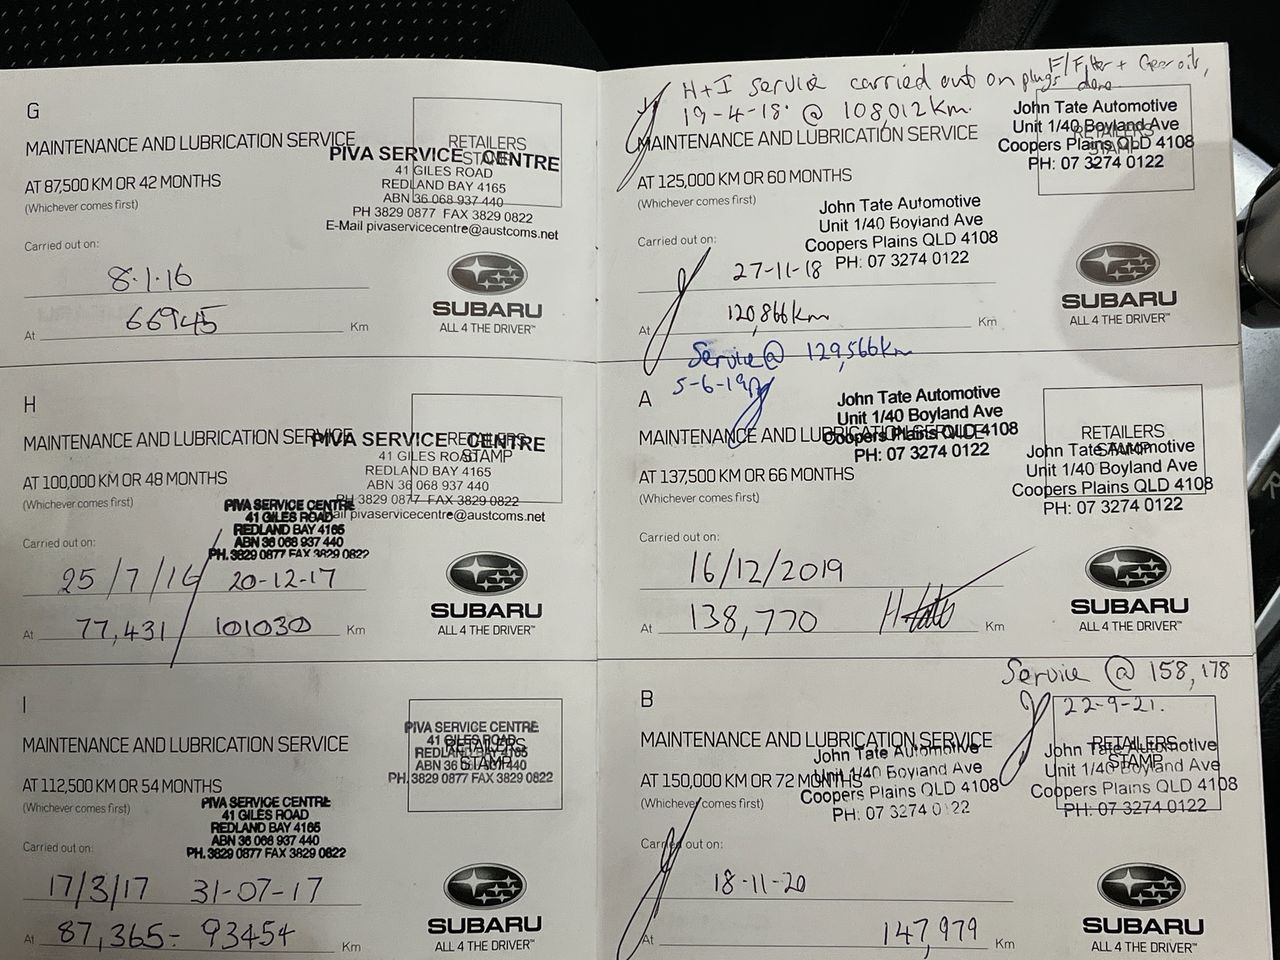 G
MAINTENANCE AND LUBRICATION SERVICE
RETAILERS
STAMP
PIVA SERVICE CENTRE
41 GILES ROAD
REDLAND BAY 4165
ABN 36 068 937 440
PH 3829 0877 FAX 3829 0822
E-Mail pivaservicecentre@austcoms.net
AT 87,500 KM OR 42 MONTHS
(Whichever comes first)
Carried out on:
8.1.16
At 66945 Km
SUBARU
ALL 4 THE DRIVER™
H
MAINTENANCE AND LUBRICATION SERVICE
RETAILERS
STAMP
PIVA SERVICE CENTRE
41 GILES ROAD
REDLAND BAY 4165
ABN 36 068 937 440
PH 3829 0877 FAX 3829 0822
E-Mail pivaservicecentre@austcoms.net
AT 100,000 KM OR 48 MONTHS
(Whichever comes first)
PIVA SERVICE CENTRE
41 GILES ROAD
REDLAND BAY 4165
ABN 36 068 937 440
PH. 3829 0877 FAX 3829 0822
Carried out on:
25/7/16 20-12-17
At 77,431 101030 Km
SUBARU
ALL 4 THE DRIVER™
I
MAINTENANCE AND LUBRICATION SERVICE
RETAILERS
STAMP
PIVA SERVICE CENTRE
41 GILES ROAD
REDLAND BAY 4165
ABN 36 068 937 440
PH. 3829 0877 FAX 3829 0822
AT 112,500 KM OR 54 MONTHS
(Whichever comes first)
PIVA SERVICE CENTRE
41 GILES ROAD
REDLAND BAY 4165
ABN 36 068 937 440
PH. 3829 0877 FAX 3829 0822
Carried out on:
17/3/17 31-07-17
At 87,365- 93454 Km
SUBARU
ALL 4 THE DRIVER™
H+I service carried out on plugs F/Filter + Gear oils,
done
19-4-18 @ 108,012 km.
MAINTENANCE AND LUBRICATION SERVICE
RETAILERS
STAMP
John Tate Automotive
Unit 1/40 Boyland Ave
Coopers Plains QLD 4108
PH: 07 3274 0122
AT 125,000 KM OR 60 MONTHS
(Whichever comes first)
John Tate Automotive
Unit 1/40 Boyland Ave
Coopers Plains QLD 4108
PH: 07 3274 0122
Carried out on:
27-11-18
At 120,866km Km
SUBARU
ALL 4 THE DRIVER™
Service @ 129,566km
5-6-19
A
MAINTENANCE AND LUBRICATION SERVICE
John Tate Automotive
Unit 1/40 Boyland Ave
Coopers Plains QLD 4108
PH: 07 3274 0122
RETAILERS
STAMP
John Tate Automotive
Unit 1/40 Boyland Ave
Coopers Plains QLD 4108
PH: 07 3274 0122
AT 137,500 KM OR 66 MONTHS
(Whichever comes first)
Carried out on:
16/12/2019
At 138,770 Km
SUBARU
ALL 4 THE DRIVER™
Service @ 158,178
22-9-21.
B
MAINTENANCE AND LUBRICATION SERVICE
John Tate Automotive
Unit 1/40 Boyland Ave
Coopers Plains QLD 4108
PH: 07 3274 0122
RETAILERS
STAMP
John Tate Automotive
Unit 1/40 Boyland Ave
Coopers Plains QLD 4108
PH: 07 3274 0122
AT 150,000 KM OR 72 MONTHS
(Whichever comes first)
Carried out on:
18-11-20
At 147,979 Km
SUBARU
ALL 4 THE DRIVER™